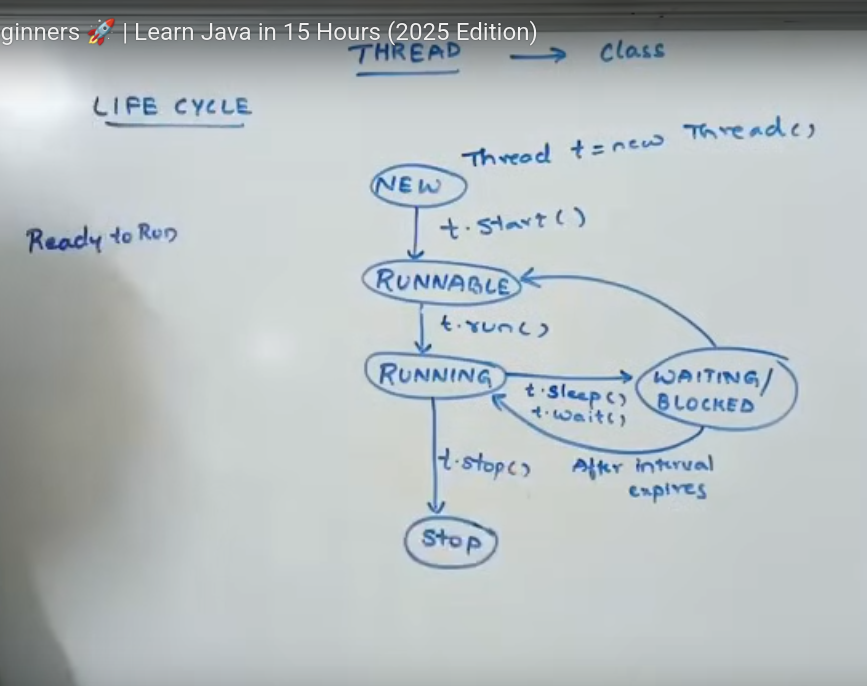 ginners 🚀 | Learn Java in 15 Hours (2025 Edition)
THREAD → Class
LIFE CYCLE
Thread t = new Thread()
NEW
t.start()
Ready to Run
RUNNABLE
t.run()
RUNNING
t.sleep()
t.wait()
WAITING/
BLOCKED
t.stop()
After interval
expires
Stop